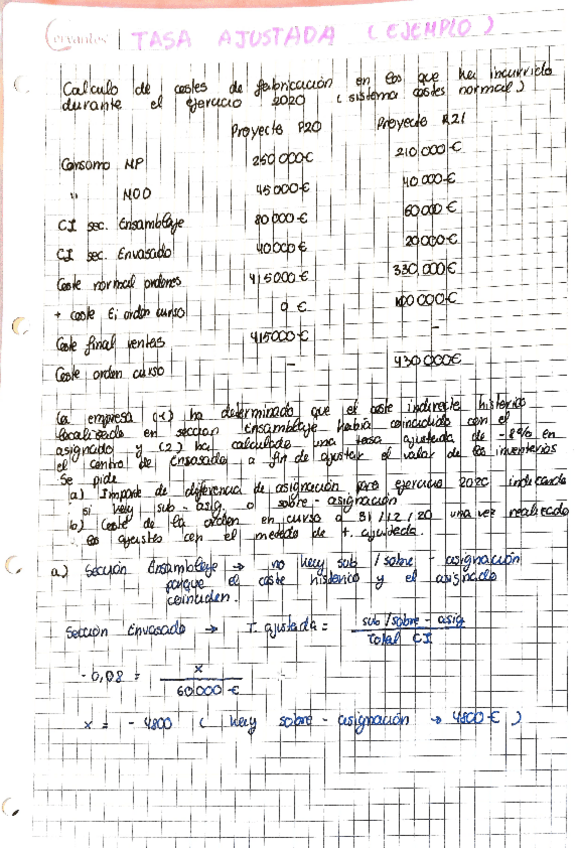 cervantes | TASA AJUSTADA (EJEMPLO)
Calculo de costes de fabricación en los que ha incurrido
durante el ejercicio 2020 (sistema costes normal)
Proyecto P20 Proyecto R21
Consumo MP 250 000€ 210 000€
" MOD 45 000€ 40 000€
CI sec. Ensamblaje 80 000€ 60 000€
CI sec. Envasado 40 000€ 20 000€
Coste normal ordenes 415 000€ 330 000€
+ coste Ei orden curso 0 € 100 000€
Coste final ventas 415000€ -
Coste orden curso - 430 000€
La empresa (1) ha determinado que el coste indirecto historico
localizado en sección Ensamblaje habia coincidido con el
asignado y (2) ha calculado una tasa ajustada de -8% en
el centro de Envasado a fin de ajustar el valor de los inventarios
Se pide
a) Importe de diferencia de asignación para ejercicio 2020 indicando
si hay sub-asig. o sobre-asignación
b) Coste de la orden en curso a 31/12/20 una vez realizado
los ajustes con el metodo de t. ajustada.
a) Sección Ensamblaje → no hay sub/sobre - asignación
porque el coste historico y el asignado
coinciden.
Sección Envasado → T. ajustada = sub/sobre - asig
total CI
-0,08 = x
60 000 €
x = - 4800 ( hay sobre-asignación → 4800 € )